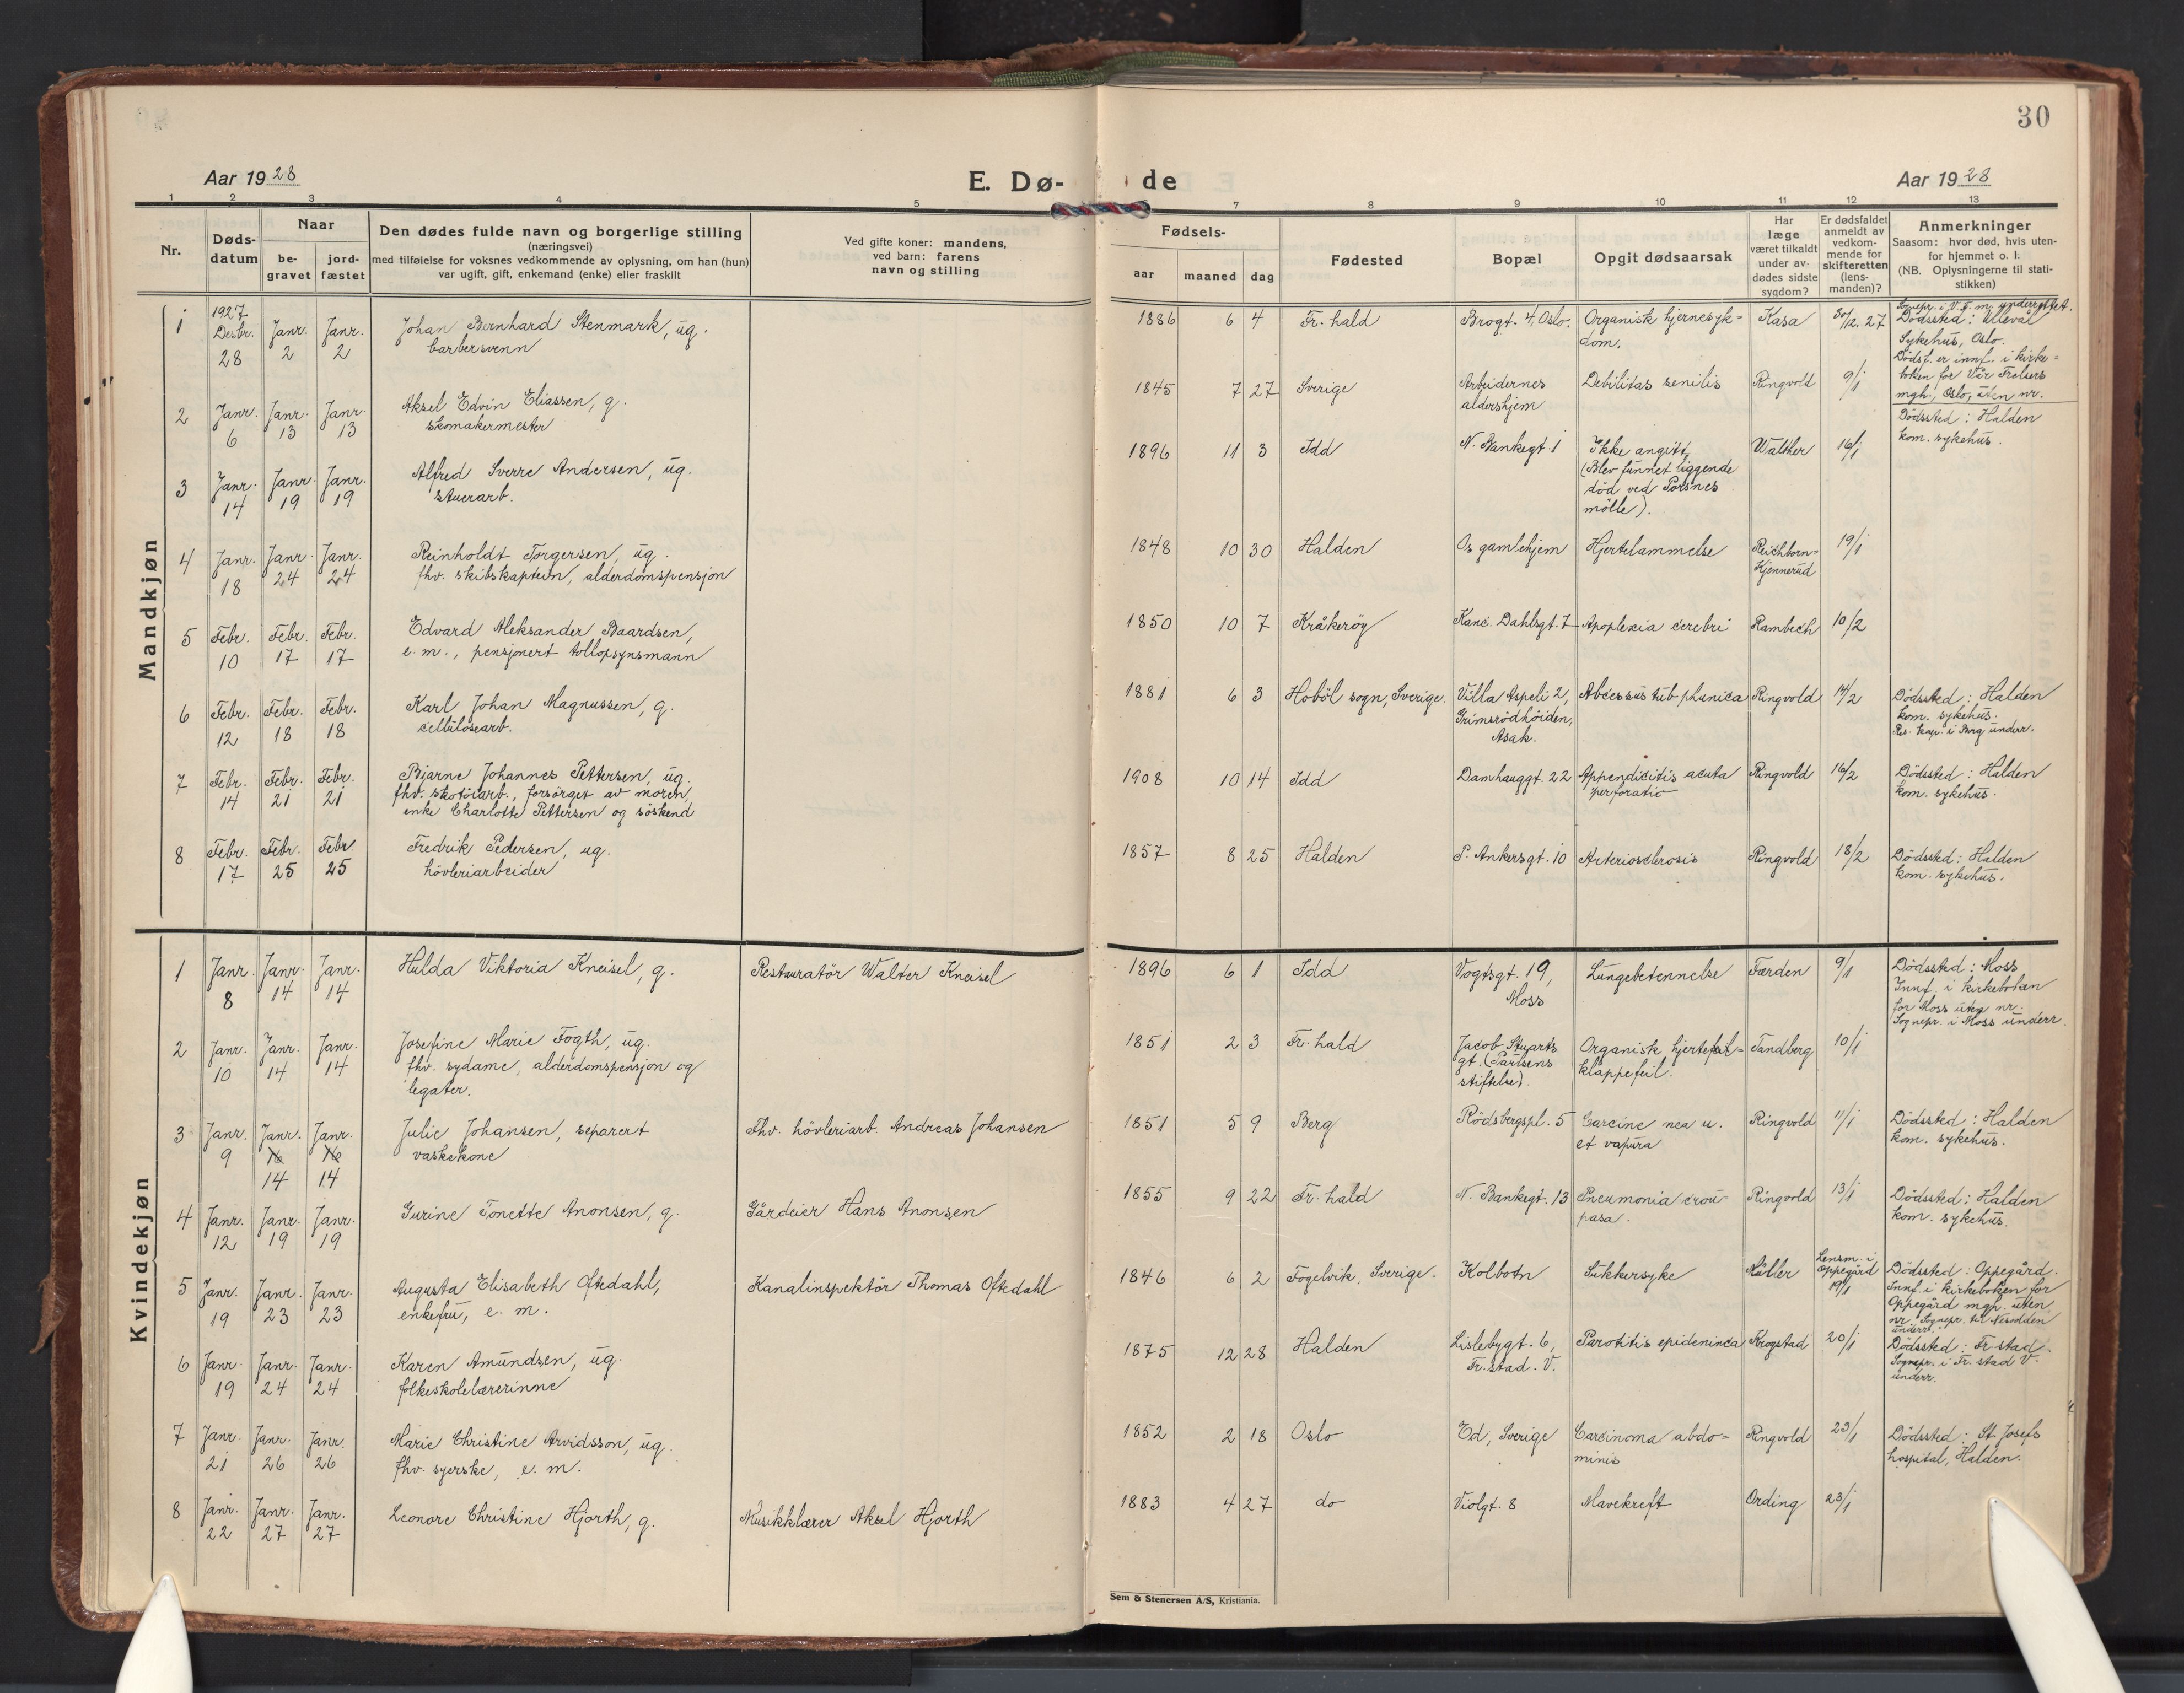 30
Aar 1928
E. Dø-
de
Aar 1928
1 2 3 4 5
7 8 9 10 11 12 13
Nr.
Døds-
datum
Naar
be-
gravet
jord-
fæstet
Den dødes fulde navn og borgerlige stilling
(næringsvei)
med tilføielse for voksnes vedkommende av oplysning, om han (hun)
var ugift, gift, enkemand (enke) eller fraskilt
Ved gifte koner: mandens,
ved barn: farens
navn og stilling
Fødsels-
aar maaned dag
Fødested
Bopæl
Opgit dødsaarsak
Har
læge
været tilkaldt
under av-
dødes sidste
sygdom?
Er dødsfaldet
anmeldt av
vedkom-
mende for
skifteretten
(lens-
manden)?
Anmerkninger
Saasom: hvor død, hvis uten-
for hjemmet o. l.
(NB. Oplysningerne til stati-
stikken)
Mandkjøn
1
1927
Desbr.
28
Janr.
2
Janr.
2
Johan Bernhard Stenmark, ug.
barbersvenn
1886 6 4 Fr. hald
Brogt. 4, Oslo.
Organisk hjernesyk=
dom.
Kasa
30/12. 27
Sognepr. i V. F. m. underrettet.
Dødssted: Ullevål
Sykehus, Oslo.
Dødsf. er innf. i kirke=
boken for Vår Frelsers
mgh., Oslo, uten nr.
2
Janr.
6
Janr.
13
Janr.
13
Aksel Edvin Eliassen, g.
skomakermester
1845 7 27 Sverige
Arbeidernes
aldershjem
Debilitas senilis
Ringvold
9/1
Dødssted: Halden
kom. sykehus.
3
Janr.
14
Janr.
19
Janr.
19
Alfred Sverre Andersen, ug.
stuerarb.
1896 11 3 Idd
N. Bankegt. 1
Ikke angitt,
(Blev funnet liggende
død ved Porsnes
mølle).
Walther
16/1
4
Janr.
18
Janr.
24
Janr.
24
Reinholdt Torgersen, ug.
fhv. skibskaptein, alderdomspensjon
1848 10 30 Halden
Os gamlehjem
Hjertelammelse
Reichborn=
Kjennerud
19/1
5
Febr.
10
Febr.
17
Febr.
17
Edvard Aleksander Baardsen,
e. m., pensjonert tollopsynsmann
1850 10 7 Kråkerøy
Kanc. Dahlsgt. 7
Apoplexia cerebri
Rambech
10/2
6
Febr.
12
Febr.
18
Febr.
18
Karl Johan Magnussen, g.
cellulosearb.
1881 6 3 Hoböl sogn, Sverige.
Villa Aspeli 2,
Grimsrödhöiden,
Asak.
Abcessus sub phrenica
Ringvold
14/2
Dødssted: Halden
kom. sykehus.
Res. kap. i Berg underr.
7
Febr.
14
Febr.
21
Febr.
21
Bjarne Johannes Pettersen, ug.
fhv. skotöiarb., forsörget av moren,
enke Charlotte Pettersen og söskend
1908 10 14 Idd
Damhauggt. 22
Appendicitis acuta
perforatio
Ringvold
16/2
Dødssted: Halden
kom. sykehus.
8
Febr.
17
Febr.
25
Febr.
25
Fredrik Pedersen, ug.
hövleriarbeider
1857 8 25 Halden
P. Ankersgt. 10
Arteriosclerosis
Ringvold
18/2
Dødssted: Halden
kom. sykehus.
Kvindekjøn
1
Janr.
8
Janr.
14
Janr.
14
Hulda Viktoria Kneisel, g.
Restauratör Walter Kneisel
1896 6 1 Idd
Vogtsgt. 19,
Moss
Lungebetennelse
Færden
9/1
Dødssted: Moss
Innf. i kirkeboken
for Moss uten nr.
Sognepr. i Moss underr.
2
Janr.
10
Janr.
14
Janr.
14
Josefine Marie Fogth, ug.
fhv. sydame, alderdomspensjon og
legater.
1851 2 3 Fr. hald
Jacob Stuarts
gt. (Paulsens
stiftelse).
Organisk hjertefeil=
klappefeil.
Tandberg
10/1
3
Janr.
9
Janr.
16
14
Janr.
16
14
Julie Johansen, separert
vaskekone
Fhv. hövleriarb. Andreas Johansen
1851 5 9 Berg
Rödsbergspl. 5
Ringvold
11/1
Dødssted: Halden
kom. sykehus.
4
Janr.
12
Janr.
19
Janr.
19
Gurine Tonette Anonsen, g.
Gårdeier Hans Anonsen
1855 9 22 Fr. hald
N. Bankegt. 13
Pneumonia crou=
pasa.
Ringvold
13/1
Dødssted: Halden
kom. sykehus.
5
Janr.
19
Janr.
23
Janr.
23
Augusta Elisabeth Oftedahl,
enkefru, e. m.
Kanalinspektör Thomas Oftedahl
1846 6 2 Fogelvik, Sverige.
Kolbotn
Sukkersyke
Müller
Lensm. i
Oppegård
19/1
Dødssted: Oppegård.
Innf. i kirkeboken for
Oppegård mgh. uten
nr. Sognepr. til Nesodden
underr.
6
Janr.
19
Janr.
24
Janr.
24
Karen Amundsen, ug.
folkeskolelærerinne
1875 12 28 Halden
Lislebygt. 6,
Fr.stad. V.
Parotitis epideminca
Krogstad
20/1
Dødssted: Fr.stad.
Sognepr. i Fr.stad V.
underr.
7
Janr.
21
Janr.
26
Janr.
26
Marie Christine Arvidsson, ug.
fhv. syerske, e. m.
1852 2 18 Oslo
Ed, Sverige
Carcinoma abdo=
minis
Ringvold
23/1
Dødssted: St. Josefs
hospital, Halden.
8
Janr.
22
Janr.
27
Janr.
27
Leonore Christine Hjorth, g.
Musikklærer Aksel Hjorth
1883 4 27 do
Violgt. 8
Mavekreft
Ording
23/1
Sem & Stenersen A/S, Kristiania.